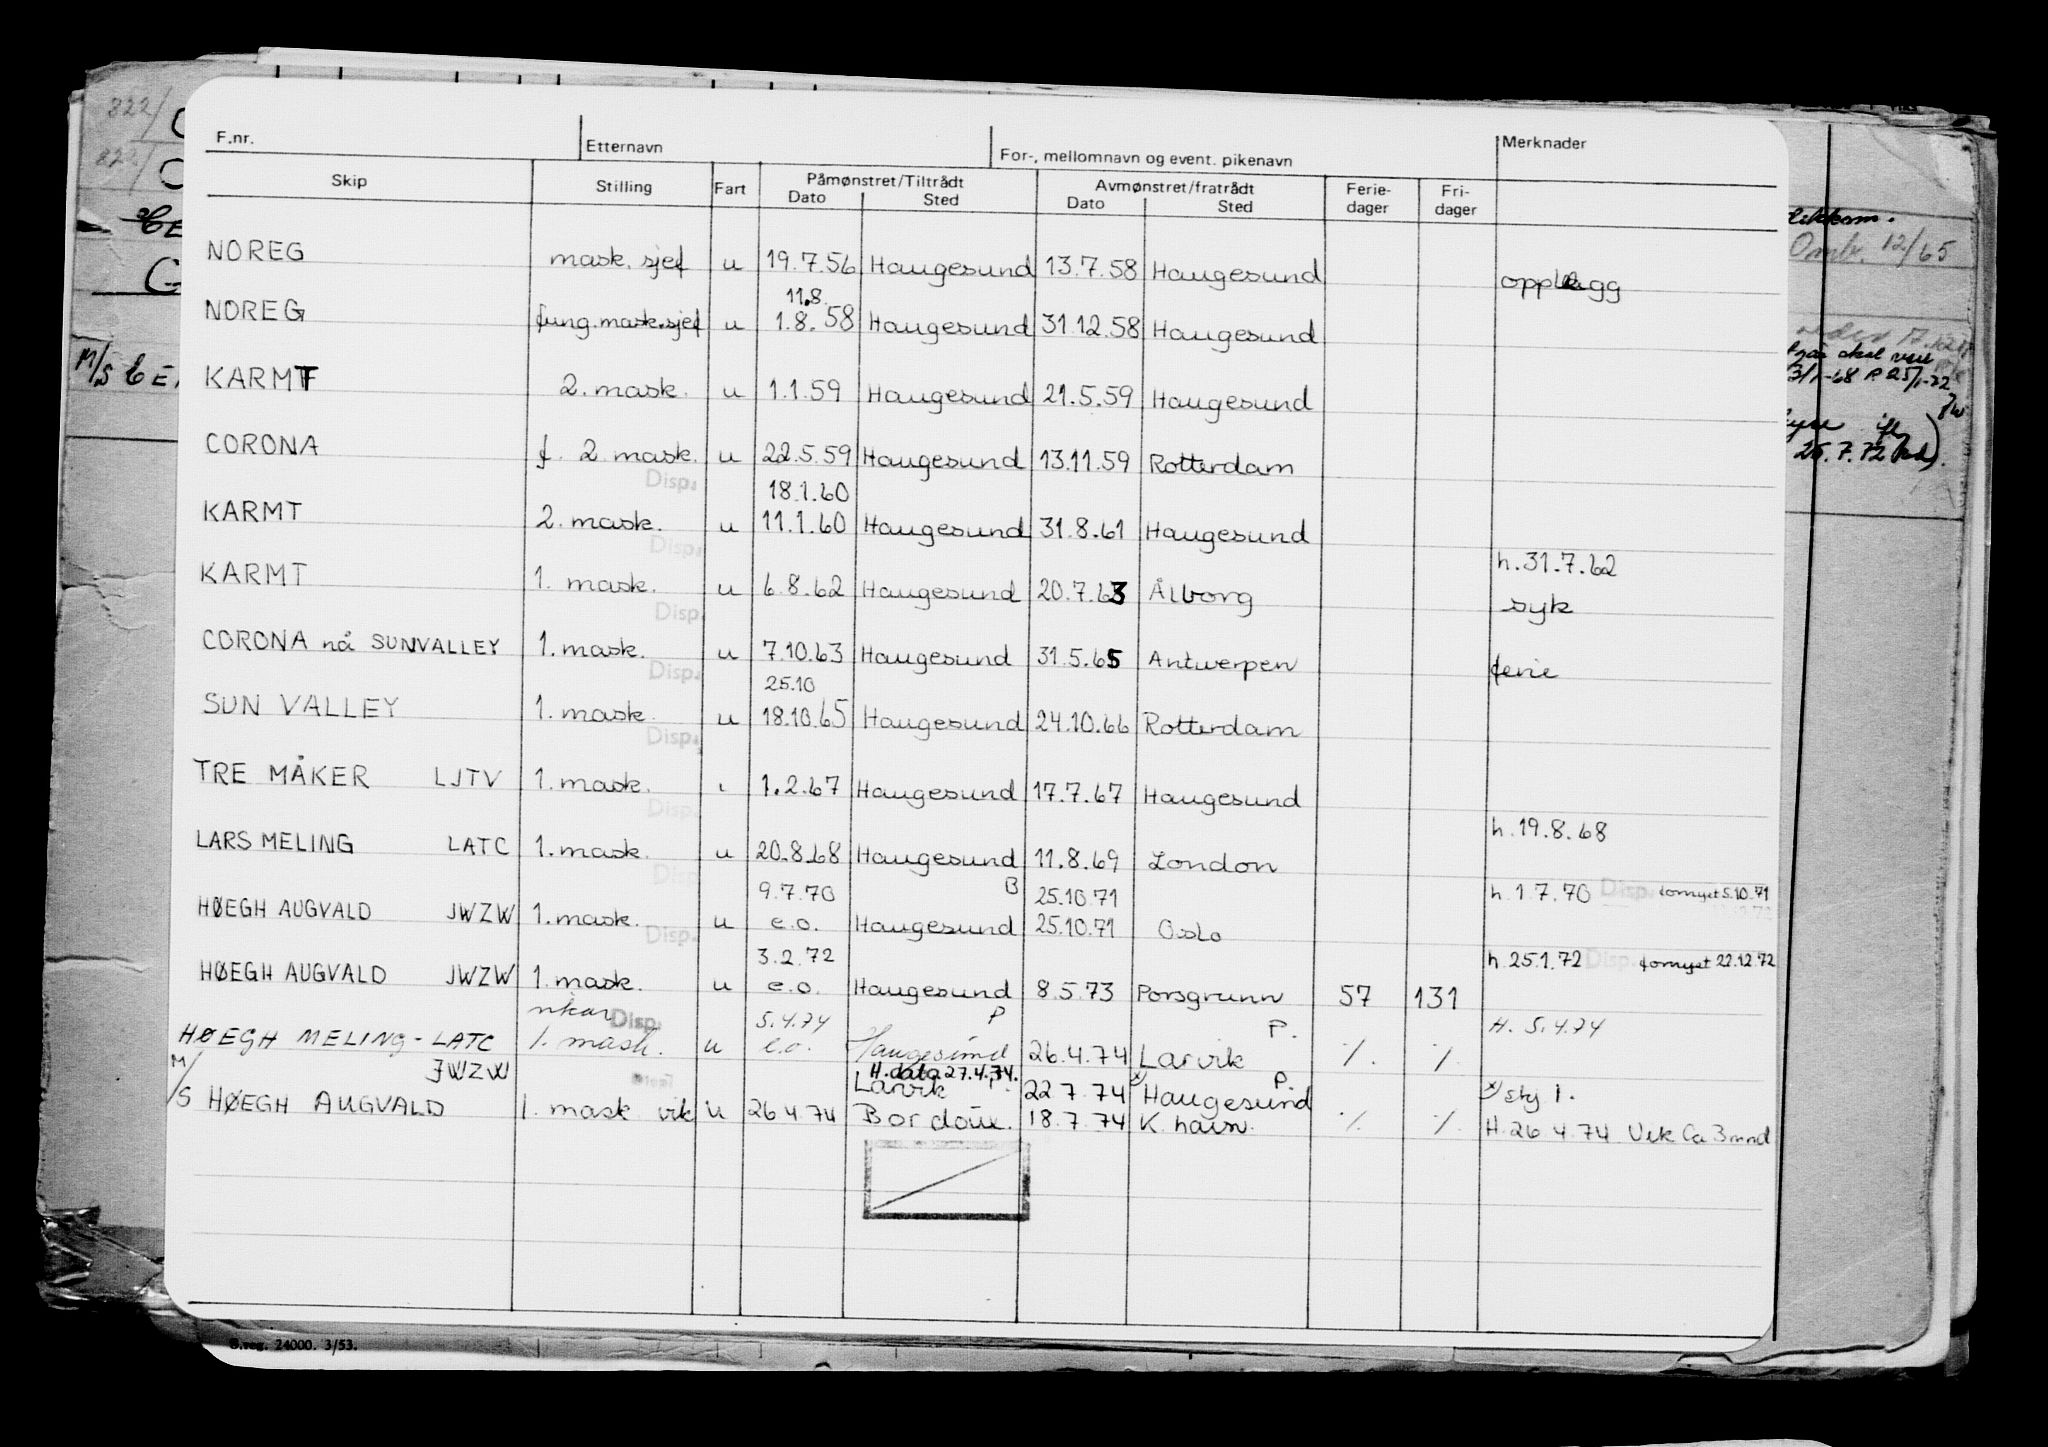 F.nr. Etternavn For-, mellomnavn og event. pikenavn Merknader
Skip Stilling Fart Påmønstret/Tiltrådt Avmønstret/fratrådt Ferie- Fri-
Dato Sted Dato Sted dager dager
NOREG mask. sjef u 19.7.56 Haugesund 13.7.58 Haugesund opplagg
11.8.
NOREG fung. mask.sjef u 1.8.58 Haugesund 31.12.58 Haugesund
KARMT 2. mask. u 1.1.59 Haugesund 21.5.59 Haugesund
CORONA f. 2 mask. u 22.5.59 Haugesund 13.11.59 Rotterdam
Disp. 18.1.60
KARMT 2. mask. u 11.1.60 Haugesund 31.8.61 Haugesund
Disp. h.31.7.62
KARMT 1. mask. u 6.8.62 Haugesund 20.7.63 Ålborg syk
Disp.
CORONA nå SUNVALLEY 1. mask. u 7.10.63 Haugesund 31.5.65 Antwerpen ferie
Disp. 25.10
SUN VALLEY 1. mask. u 18.10.65 Haugesund 24.10.66 Rotterdam
Disp.
TRE MÅKER LJTV 1. mask. 1.2.67 Haugesund 17.7.67 Haugesund
Disp. h.19.8.68
LARS MELING LATC 1. mask. u 20.8.68 Haugesund 11.8.69 London
Disp. 9.7.70 B 25.10.71 h.1.7.70 Disp. fornyet 5.10.71
HØEGH AUGVALD JWZW 1. mask. u e.o. Haugesund 25.10.71 Oslo
Disp. 3.2.72 h.25.1.72 Disp. fornyet 22.12.72
HØEGH AUGVALD JWZW 1. mask. u e.o. Haugesund 8.5.73 Porsgrunn 57 131
vikar Disp. 5.4.74 P P. H. 5.4.74
HØEGH MELING - LATC 1. mask. u e.o. Haugesund 26.4.74 Larvik ٪. ٪.
H. data 27.4.74.
M/S JWZW Larvik P. 22.7.74 x) Haugesund P. x) skj 1.
HØEGH AUGVALD 1. mask vik u 26.4.74 Bordoux. 18.7.74 K. havn. ٪. ٪. H.26.4.74 Vik Ca 3 mnd
S.reg. 24000. 3/53.
822/
822/
M/S
Omb. 12/65
25.7.72